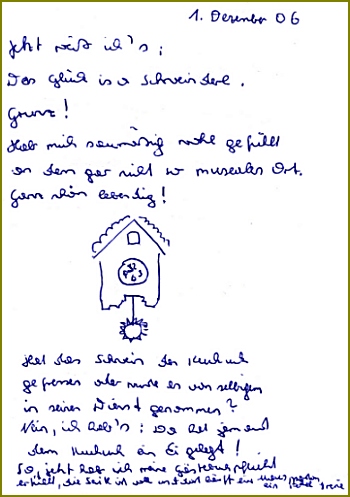 1. Dezember 06
Jetzt weiß ich's:
Das Glück is a Schweinderl.
Grunz!
Hab mich saumäßig wohl gefühlt
an dem gar nicht so musealen Ort.
Ganz schön lebendig!
Hat das Schwein den Kuckuck
gefressen oder wurde es von selbigem
in seinen Dienst genommen?
Nein, ich hab's: Da hat jemand
dem Kuckuck ein Ei gelegt!
So, jetzt hab ich meine Gästebuchpflicht
erfüllt, die Seite ist voll und